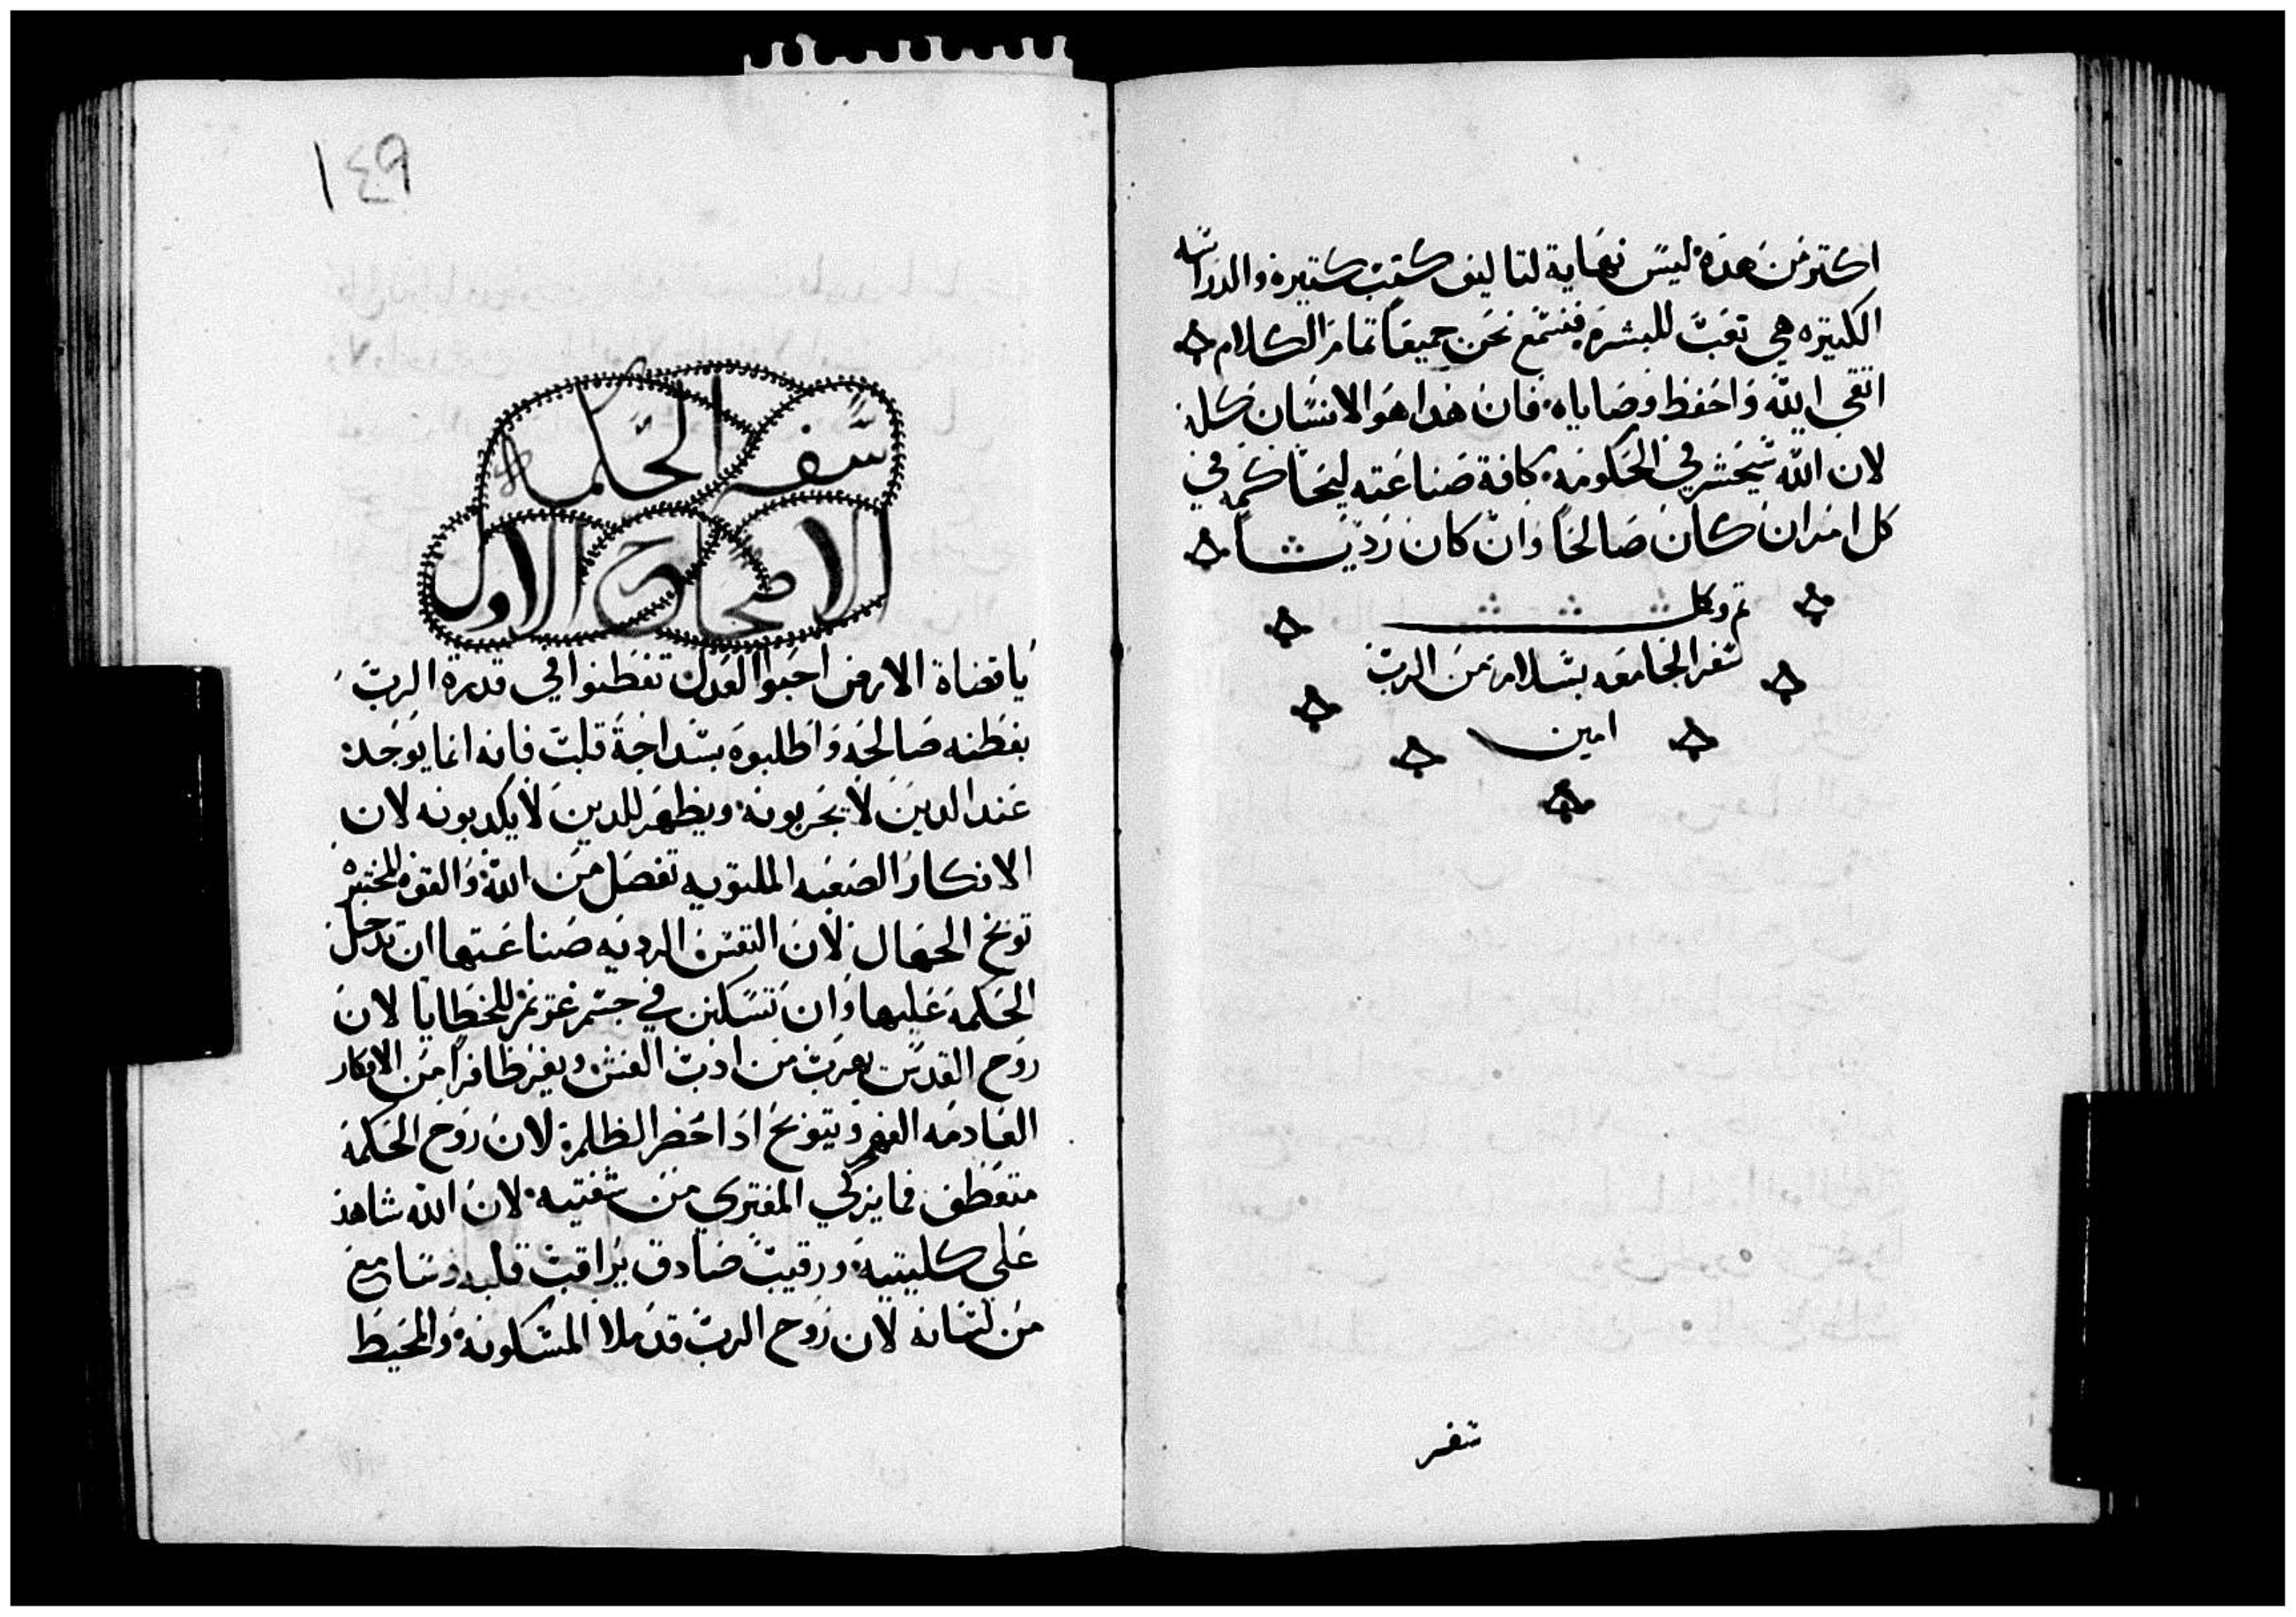 اكتر من هده ليس نهاية لتاليف كتب كتيره والدراسه
الكتيره هي تعب للبشره فنسمع نحن جميعا تمام الكلام
اتقي الله واحفظ وصاياه فان هدا هو الانسان كله
لان الله سيحشر في الحكومه كافة صناعته ليحاكمه في
كل امر ان كان صالحا وان كان رديا
تم وكل
سفر الجامعه بسلام من الرب
امين
سفر
١٤٩
سفر الحكمه
الاصحاح الاول
يا قضاة الارض احبوا العدل تفطنوا في قدرة الرب
بفطنه صالحه واطلبوه بسداجة قلب فانه انما يوجد
عند الدين لا يجربونه ويظهر للدين لا يكدبونه لان
الافكار الصعبه الملتويه تفصل من الله والقوه المختبره
توبخ الجهال لان النفس الرديه صناعتها ان تدخل
الحكمه عليها وان تسكن في جسم غريم للخطايا لان
روح القدس يهرب من ادب الغش ويفر ظافرا من الافكار
العادمه الفهم ويتوبخ ادا حضر الظلم لان روح الحكمه
متعطف فما يزكي المفتري من شفتيه لان الله شاهد
علي كليتيه ورقيب صادق يراقب قلبه وسامع
من لسانه لان روح الرب قد ملا المسكونه والمحيط